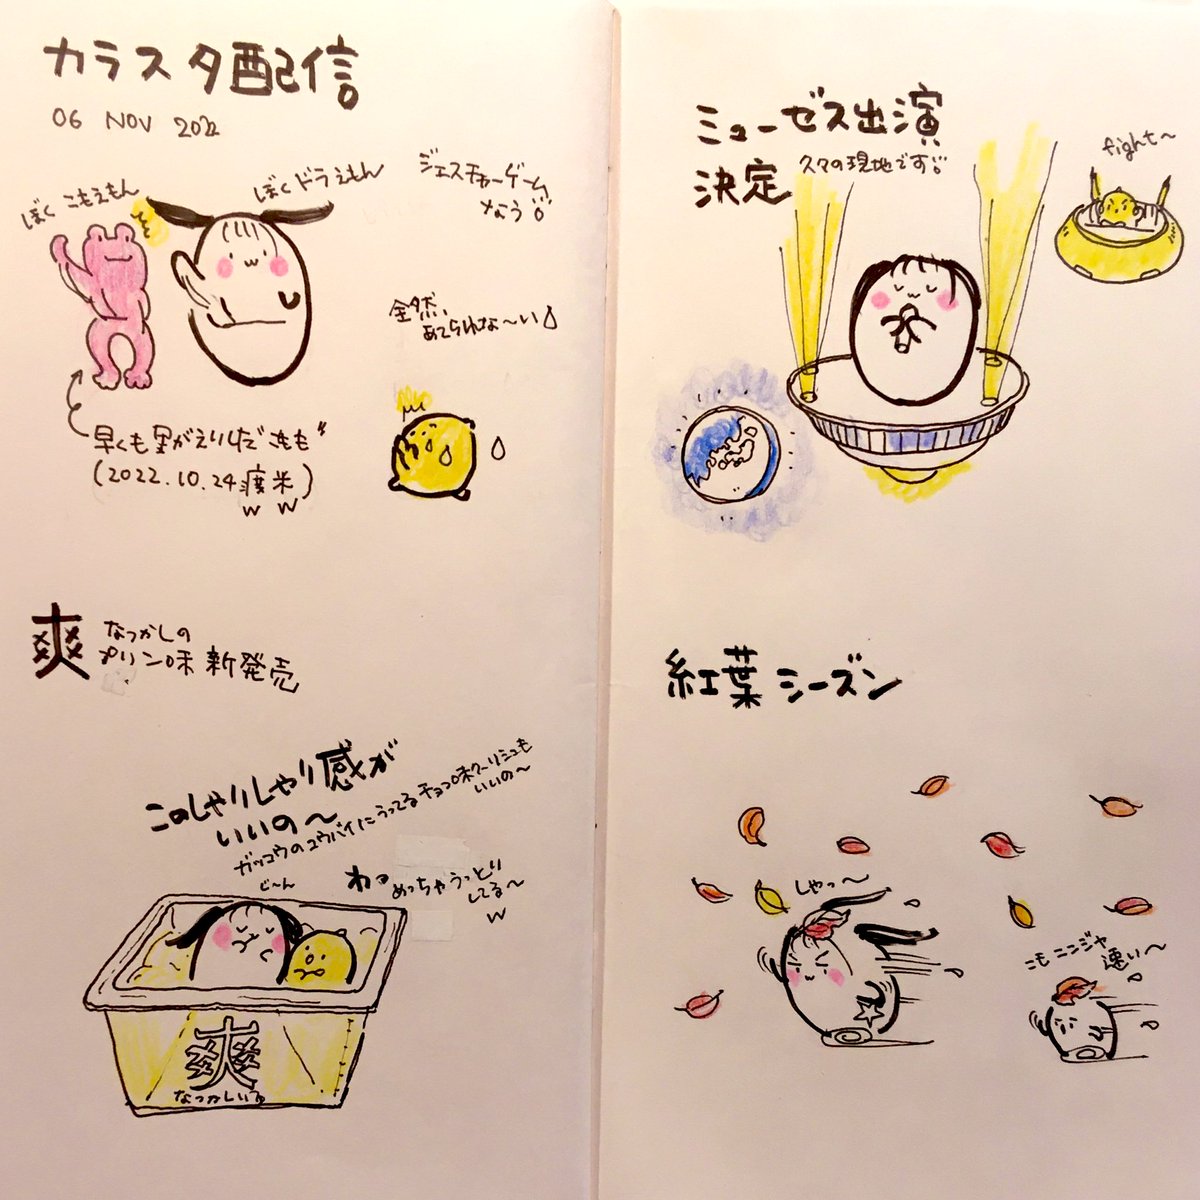 カラスタ配信
06 NOV 2022
ぼく こもえもん
ぼくドラえもん
ジェスチャーゲーム
なう
全然、
あてられな〜い
早くも里がえりした
(2022.10.24渡米)
w w
爽
なつかしの
プリン味 新発売
このしゃりしゃり感が
いいの〜
ガッコウのコウバイにうってるチョコ味クーリッシュも
いいの〜
じ〜ん
わの
めっちゃうっとり
してる〜
w
爽
なつかしい
ミューゼス出演
決定 久々の現地です
fight〜
紅葉シーズン
しゃっ〜
こもニンジャ
速い〜